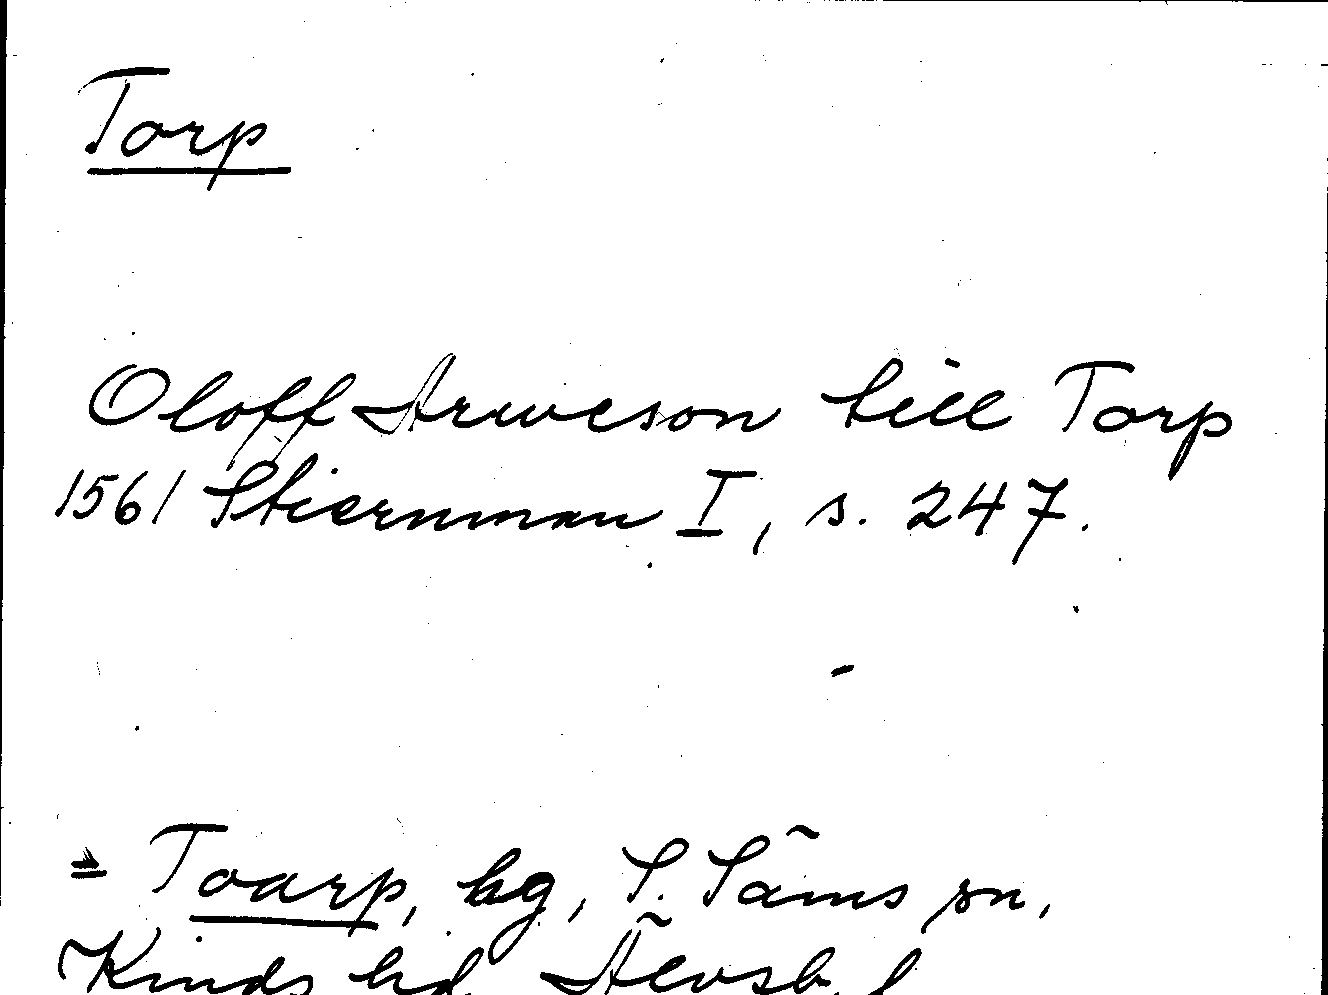 Torp
Oloff Arweson till Torp
1561 Stiernman I, s. 247.
= Toarp, hg, S. Säms sn,
Kinds hd, Älvsb. l